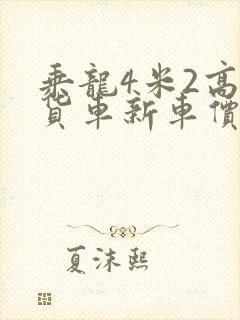 乘龍4米2高
貨車新車價
夏沫熙